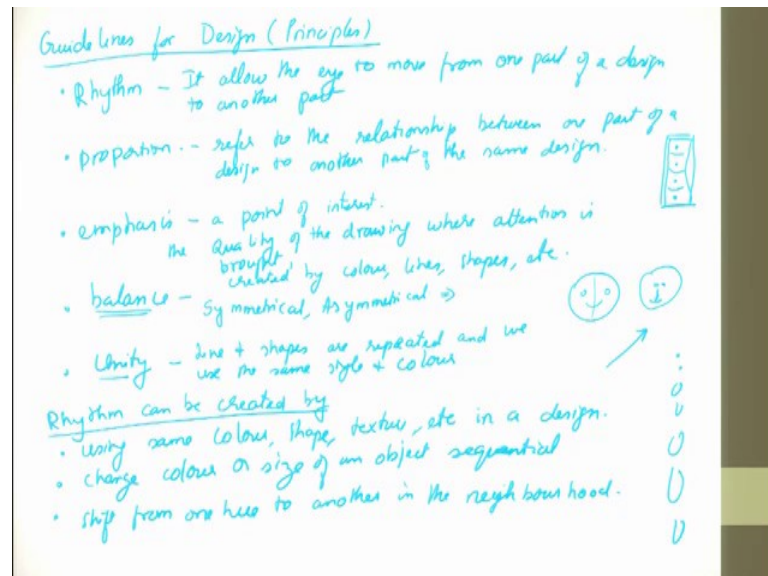 Guidelines for Design (Principles)
• Rhythm – It allow the eye to move from one part of a design
to another part
• proportion. – refer to the relationship between one part of a
design to another part of the same design.
• emphasis – a point of interest.
the quality of the drawing where attention is
brought
created by colour, lines, shapes, etc.
• balance – Symmetrical, Asymmetrical ⇒
• Unity – line + shapes are repeated and we
use the same style + colour
Rhythm can be created by
• using same colour, shape, texture, etc in a design.
• change colour or size of an object sequential
• shift from one hue to another in the neighbourhood.